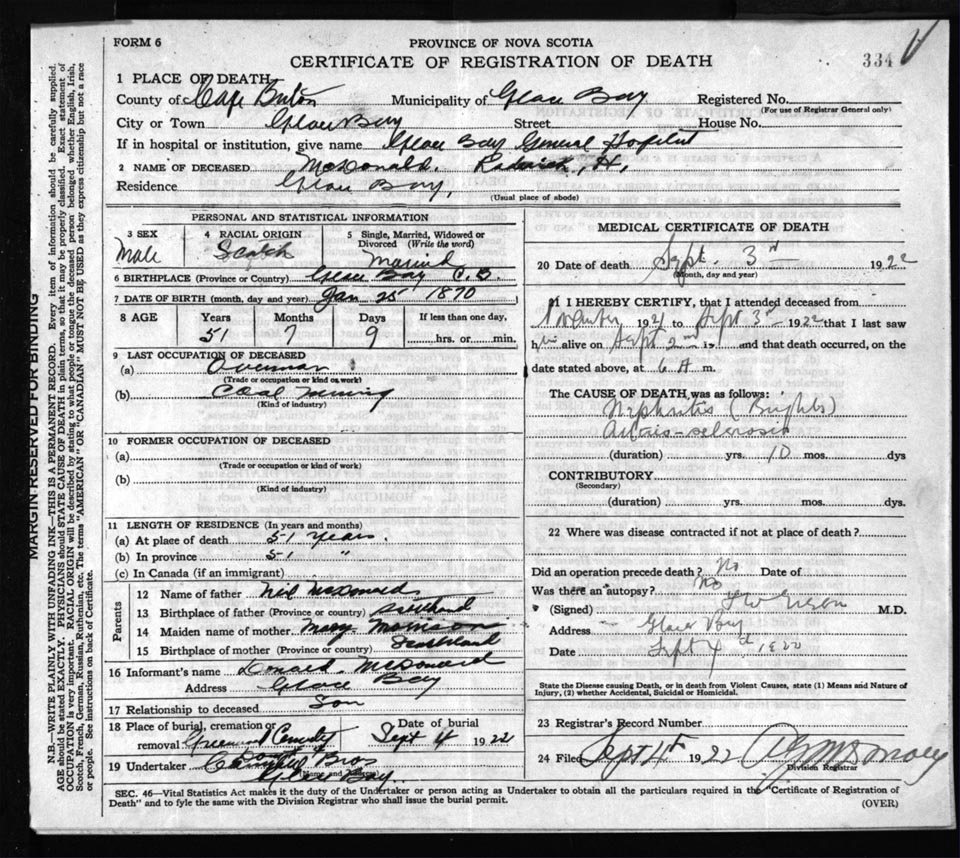 FORM 6
PROVINCE OF NOVA SCOTIA
CERTIFICATE OF REGISTRATION OF DEATH
334
1 PLACE OF DEATH
County of Cape Breton Municipality of Glace Bay Registered No.
(For use of Registrar General only)
City or Town Glace Bay Street House No.
If in hospital or institution, give name Glace Bay General Hospital
2 NAME OF DECEASED McDonald, Roderick, H,
Residence Glace Bay,
(Usual place of abode)
PERSONAL AND STATISTICAL INFORMATION
3 SEX
Male
4 RACIAL ORIGIN
Scotch
5 Single, Married, Widowed or Divorced (Write the word)
Married
6 BIRTHPLACE (Province or Country) Glace Bay C. B.
7 DATE OF BIRTH (month, day and year) Jan 25 1870
8 AGE
Years
51
Months
7
Days
9
If less than one day,
hrs. or min.
9 LAST OCCUPATION OF DECEASED
(a) Overman
(Trade or occupation or kind of work)
(b) Coal Mining
(Kind of industry)
10 FORMER OCCUPATION OF DECEASED
(a)
(Trade or occupation or kind of work)
(b)
(Kind of industry)
11 LENGTH OF RESIDENCE (In years and months)
(a) At place of death 51 years.
(b) In province 51 "
(c) In Canada (if an immigrant)
Parents
12 Name of father Neil McDonald
13 Birthplace of father (Province or country) Scotland
14 Maiden name of mother Mary Morrison
15 Birthplace of mother (Province or country) Scotland
16 Informant's name Donald McDonald
Address Glace Bay
17 Relationship to deceased Son
18 Place of burial, cremation or removal Greenwood Cemetery
Date of burial
Sept 4 1922
19 Undertaker Bros
(Name and Address)
Glace Bay.
MEDICAL CERTIFICATE OF DEATH
20 Date of death Sept. 3rd 1922
(Month, day and year)
21 I HEREBY CERTIFY, that I attended deceased from
1921 to Sept 3rd 1922 that I last saw
him alive on Sept 2nd and that death occurred, on the
date stated above, at 6 A m.
The CAUSE OF DEATH was as follows:
Nephritis (Brights)
(duration) yrs. 10 mos. dys
CONTRIBUTORY
(Secondary)
(duration) yrs. mos. dys.
22 Where was disease contracted if not at place of death?
Did an operation precede death? No Date of
Was there an autopsy? No
(Signed) M.D.
Address Glace Bay
Date Sept 4th 1922
State the Disease causing Death, or in death from Violent Causes, state (1) Means and Nature of
Injury, (2) whether Accidental, Suicidal or Homicidal.
23 Registrar's Record Number
24 Filed Sept 4th 1922
Division Registrar
SEC. 46—Vital Statistics Act makes it the duty of the Undertaker or person acting as Undertaker to obtain all the particulars required in the "Certificate of Registration of
Death" and to fyle the same with the Division Registrar who shall issue the burial permit.
(OVER)
MARGIN RESERVED FOR BINDING
N.B.—WRITE PLAINLY WITH UNFADING INK—THIS IS A PERMANENT RECORD. Every item of information should be carefully supplied.
AGE should be stated EXACTLY. PHYSICIANS should STATE CAUSE OF DEATH in plain terms, so that it may be properly classified. Exact statement of
OCCUPATION is very important. RACIAL ORIGIN will be described by stating to what people or tongue the deceased person belonged whether English, Irish,
Scotch, French, German, Russian, Ruthenian, etc. The terms "AMERICAN" OR "CANADIAN" MUST NOT BE USED as they express citizenship but not a race
or people. See instructions on back of Certificate.